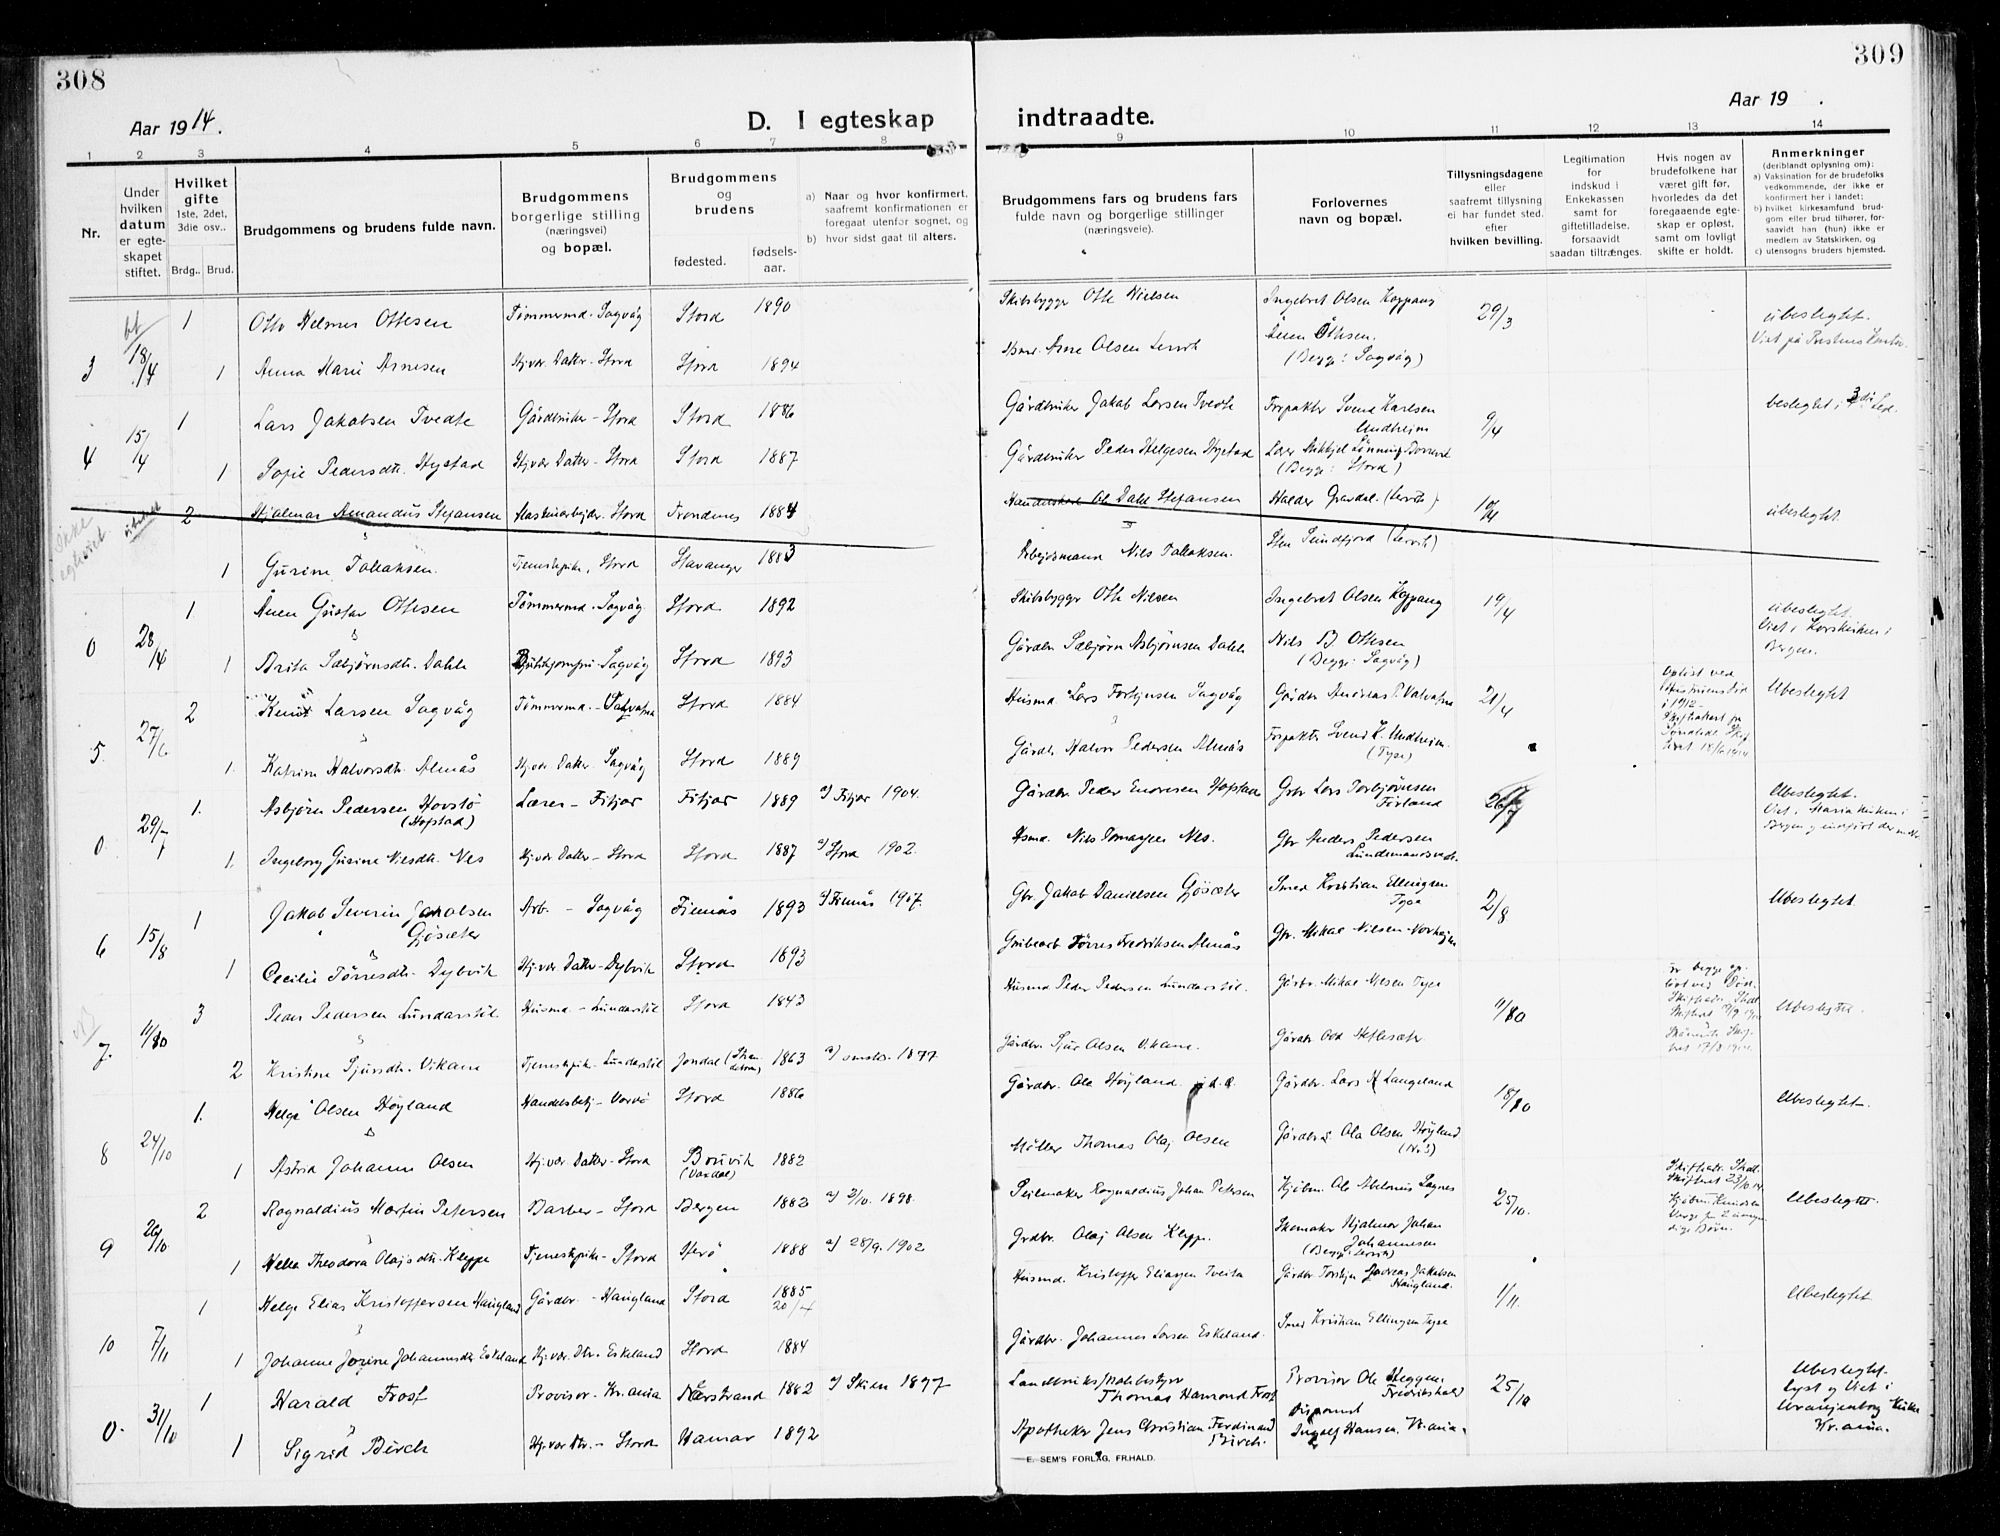 308
309
Aar 1914.
D. I egteskap
indtraadte.
Aar 19 .
1 2 3 4 5 6 7 8
9 10 11 12 13 14
Nr.
Under
hvilken
datum
er egte-
skapet
stiftet.
Hvilket
gifte
1ste, 2det,
3die osv..
Brdg.. Brud.
Brudgommens og brudens fulde navn.
Brudgommens
borgerlige stilling
(næringsvei)
og bopæl.
Brudgommens
og
brudens
fødested.
fødsels-
aar.
a) Naar og hvor konfirmert,
saafremt konfirmationen er
foregaat utenfor sognet, og
b) hvor sidst gaat til alters.
Brudgommens fars og brudens fars
fulde navn og borgerlige stillinger
(næringsveie).
Forlovernes
navn og bopæl.
Tillysningsdagene
eller
saafremt tillysning
ei har fundet sted.
efter
hvilken bevilling.
Legitimation
for
indskud i
Enkekassen
samt for
giftetilladelse,
forsaavidt
saadan tiltrænges.
Hvis nogen av
brudefolkene har
været gift før,
hvorledes da det
foregaaende egte-
skap er opløst,
samt om lovligt
skifte er holdt.
Anmerkninger
(deriblandt oplysning om):
a) Vaksination for de brudefolks
vedkommende, der ikke er
konfirmert her i landet;
b) hvilket kirkesamfund brud-
gom eller brud tilhører, for-
saavidt han (hun) ikke er
medlem av Statskirken, og
c) utensogns bruders hjemsted.
1 Otto Helmer Ottesen Tømmermd. Sagvåg Stord 1890 Skibsbygger Otto Nielsen Ingebret Olsen Koppang 29/3 ubeslegtet.
Ånen Ottesen. Viet på Prestens Kontor.
3 18/4 1 Anna Marie Arnesen Hj.vær. Datter. Stord Stord 1894 Arne Olsen Lervik (Begge: Sagvåg)
1 Lars Jakobsen Tvedte Gårdbruker - Stord Stord 1886 Gårdbruker Jakob Larsen Tvedte Forpakter Svend Karlsen
Undheim 9/4 beslegtet i 3die Led.
4 15/4 1 Sofie Pedersdtr. Hystad Hj.vær Datter - Stord Stord 1887 Gårdbruker Peder Helgesen Hystad Lærer Mikkjel Lønning
(Begge: Stord)
Ikke
egteviet 2 Hjalmar Amandus Stefansen Maskinarbejder. Stord Trondenes 1884 Ole Dahl Stefansen Halder Gravdal. (Lervik) 19/4 ubeslegtet.
1 Gurine Tollaksen. Tjenestepike, Stord Stavanger 1883 Arbeidsmann Nils Tollaksen. Sten Sundfjord (Lervik)
1 Ånen Gustav Ottesen Tømmermd. Sagvåg Stord 1892 Skibsbygger Otto Nielsen Ingebret Olsen Koppang 19/4 ubeslegtet.
Viet i Korskirken i
Bergen.
0 28/4 1 Brita Sæbjørnsdtr. Dahle Sagvåg Stord 1893 Gårdbr. Sæbjørn Asbjørnsen Dahle Nils B. Ottesen
(Begge: Sagvåg)
2 Knut Larsen Sagvåg Tømmermd. - Stord 1884 Husmd Lars Sagvåg Gårdbr Andreas P. Valvatne 21/4 Opløst ved
i 1912 - Ubeslegtet
5. 27/6 1. Katrine Halvorsdtr. Almås Hj.vær Datter. Sagvåg Stord 1889 Gårdbr. Halvor Pedersen Almås Forpakter Svend K. Undheim.
(Tyse)
1. Asbjørn Pedersen Hovstø
(Hopstad) Lærer - Fitjar Fitjar 1889 a) Fitjar 1904. Gårdbr. Peder Endresen Hopstad Gbr Lars Torbjørnsen
Førland 26/7 Ubeslegtet.
Viet i Mariakirken i
0. 29/7 1. Ingeborg Gurine Nilsdtr. Nes Hj.vær Datter - Stord Stord 1887 a) Stord 1902. Hsmd. Nils Tomassen Nes. Gbr Anders Pedersen
1 Jakob Severin Jakobsen
Gjøsæter Arb. - Sagvåg Finnås 1893 a) Finnås 1907. Gbr. Jakob Danielsen Gjøsæter Smed Kristian Ellingsen
Tyse 2/8 Ubeslegtet.
6 15/8 1 Cecilie Tørresdtr. Dybvik Hj.vær Datter - Dybvik Stord 1893 Grubearb Tørres Fredriksen Almås Gbr. Mikal Nilsen
3 Peder Pedersen Lundarstil. Husmd. - Lundarstil Stord 1843 Husmd Peder Pedersen Lundarstil. Gårbr. Mikal Nilsen Tyse 11/10 Ubeslegtet.
7. 11/10 2 Kristine Sjursdtr. Vikane Tjenestepik. Lundarstil Jondal 1863 1877 Gårdbr. Sjur Olsen Vikane. Gårdbr Odd
1. Helge Olsen Høyland Handelsbetj - Stord 1886 Gårdbr. Ola Høyland Gårdbr. Lars Langeland 18/10 Ubeslegtet.
8 24/10 1 Astrid Johanne Olsen Hj.vær Datter - Stord Bruvik
(Vaksdal) 1882 Møller Thomas Olaj Olsen Gårdbr. Ola Olsen Høyland
2 Ragnaldius Martin Petersen Barber - Stord Bergen 1883 a) 2/10. 1898. Seilmaker Ragnaldius Johan Petersen Kjøbm. Ole Abelonius Sagnes 25/10. Ubeslegtet.
9 26/10 1 Helea Theodora Olajsdtr. Kleppe Tjenestepike - Stord 1888 a) 28/9. 1902 Grdbr. Olaj Olsen Kleppe. Skomaker Hjalmar Johan
Johannesen
(Begge: Lervik)
1 Helge Elias Kristoffersen Haugland Gårdbr. - Haugland Stord 1885
20/4 Husmd. Kristoffer Eliassen Tveita Gårdbr Torstein Andreas Jakobsen
Haugland. 1/11. Ubeslegtet
10 7/11 1 Johanne Jorine Johannesdtr Eskeland Hj.vær. Dtr. - Eskeland Stord 1884 Gårdbr. Johannes Larsen Eskeland. Smed Kristian Ellingsen Tyse
1 Harald Frost Provisor - Kr.ania Nærstrand 1882 a) Skien 1897 Thomas Hamond Frost Provisor Ole Heggen
Fredrikshald 25/10 Ubeslegtet.
Lyst og Viet i
Uranienborg Kirke
Kr.ania.
0. 31/10 1 Sigrid Birch Hj.vær. Dtr. - Stord Hamar 1892 Apotheker Jens Christian Ferdinand
Birch. Ingolf Hansen. Kr.ania.
E. SEM'S FORLAG, FR.HALD.